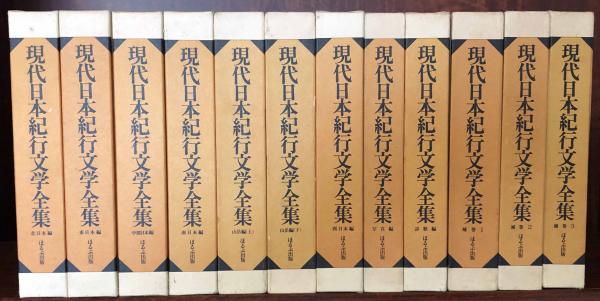 現代日本紀行文学全集
北日本編
ほるぷ出版
現代日本紀行文学全集
東日本編
ほるぷ出版
現代日本紀行文学全集
中部日本編
ほるぷ出版
現代日本紀行文学全集
南日本編
ほるぷ出版
現代日本紀行文学全集
山岳編(上)
ほるぷ出版
現代日本紀行文学全集
山岳編(下)
ほるぷ出版
現代日本紀行文学全集
西日本編
ほるぷ出版
現代日本紀行文学全集
写真編
ほるぷ出版
現代日本紀行文学全集
詩歌編
ほるぷ出版
現代日本紀行文学全集
補巻1
ほるぷ出版
現代日本紀行文学全集
補巻2
ほるぷ出版
現代日本紀行文学全集
補巻3
ほるぷ出版